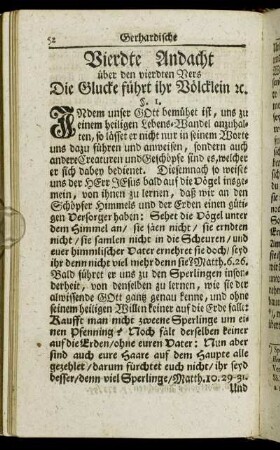 52 Gerhardische
Vierdte Andacht
über den vierdten Vers
Die Glucke führt ihr Völcklein ꝛc.
§. 1.
INdem unser GOtt bemühet ist, uns zu
einem heiligen Lebens-Wandel anzuhal-
ten, so lässet er nicht nur in seinem Worte
uns dazu führen und anweisen, sondern auch
andere Creaturen und Geschöpfe sind es, welcher
er sich dabey bedienet. Diesemnach so weiset
uns der HErr JEsus bald auf die Vögel insge-
mein, von ihnen zu lernen, daß wir an den
Schöpfer Himmels und der Erden einen güti-
gen Versorger haben: Sehet die Vögel unter
dem Himmel an/ sie säen nicht/ sie erndten
nicht/ sie samlen nicht in die Scheuren/ und
euer himmlischer Vater ernehret sie doch/ seyd
ihr denn nicht viel mehr denn sie? Matth. 6.26.
Bald führet er uns zu den Sperlingen inson-
derheit, von denselben zu lernen, wie sie der
allwissende GOtt gang genau kenne, und ohne
seinem heiligen Willen keiner auf die Erde falle:
Kaufft man nicht zweene Sperlinge um ei-
nen Pfenning? Noch fält derselben keiner
auf die Erden/ ohne euren Vater: Nun aber
sind auch eure Haare auf dem Haupte alle
gezehlet/ darum fürchtet euch nicht/ ihr seyd
besser/ denn viel Sperlinge/ Matth. 10. 29-31.
Und